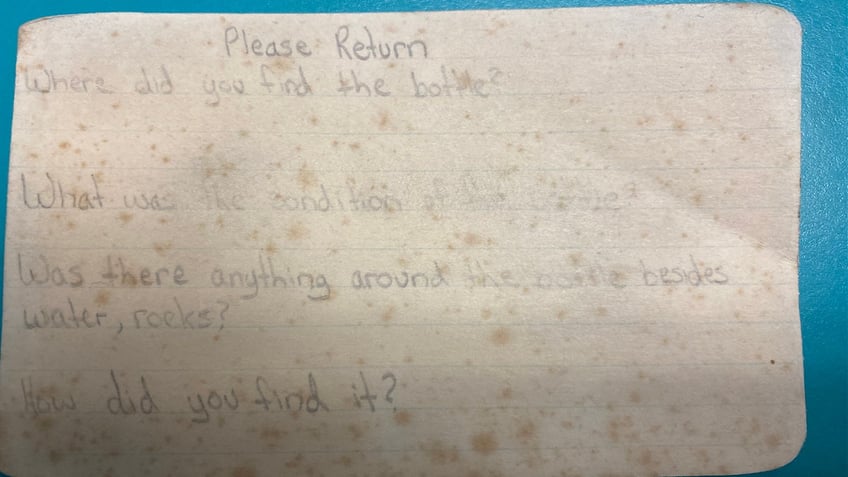 Please Return
Where did you find the bottle?
What was the condition of the bottle?
Was there anything around the bottle besides
water, rocks?
How did you find it?